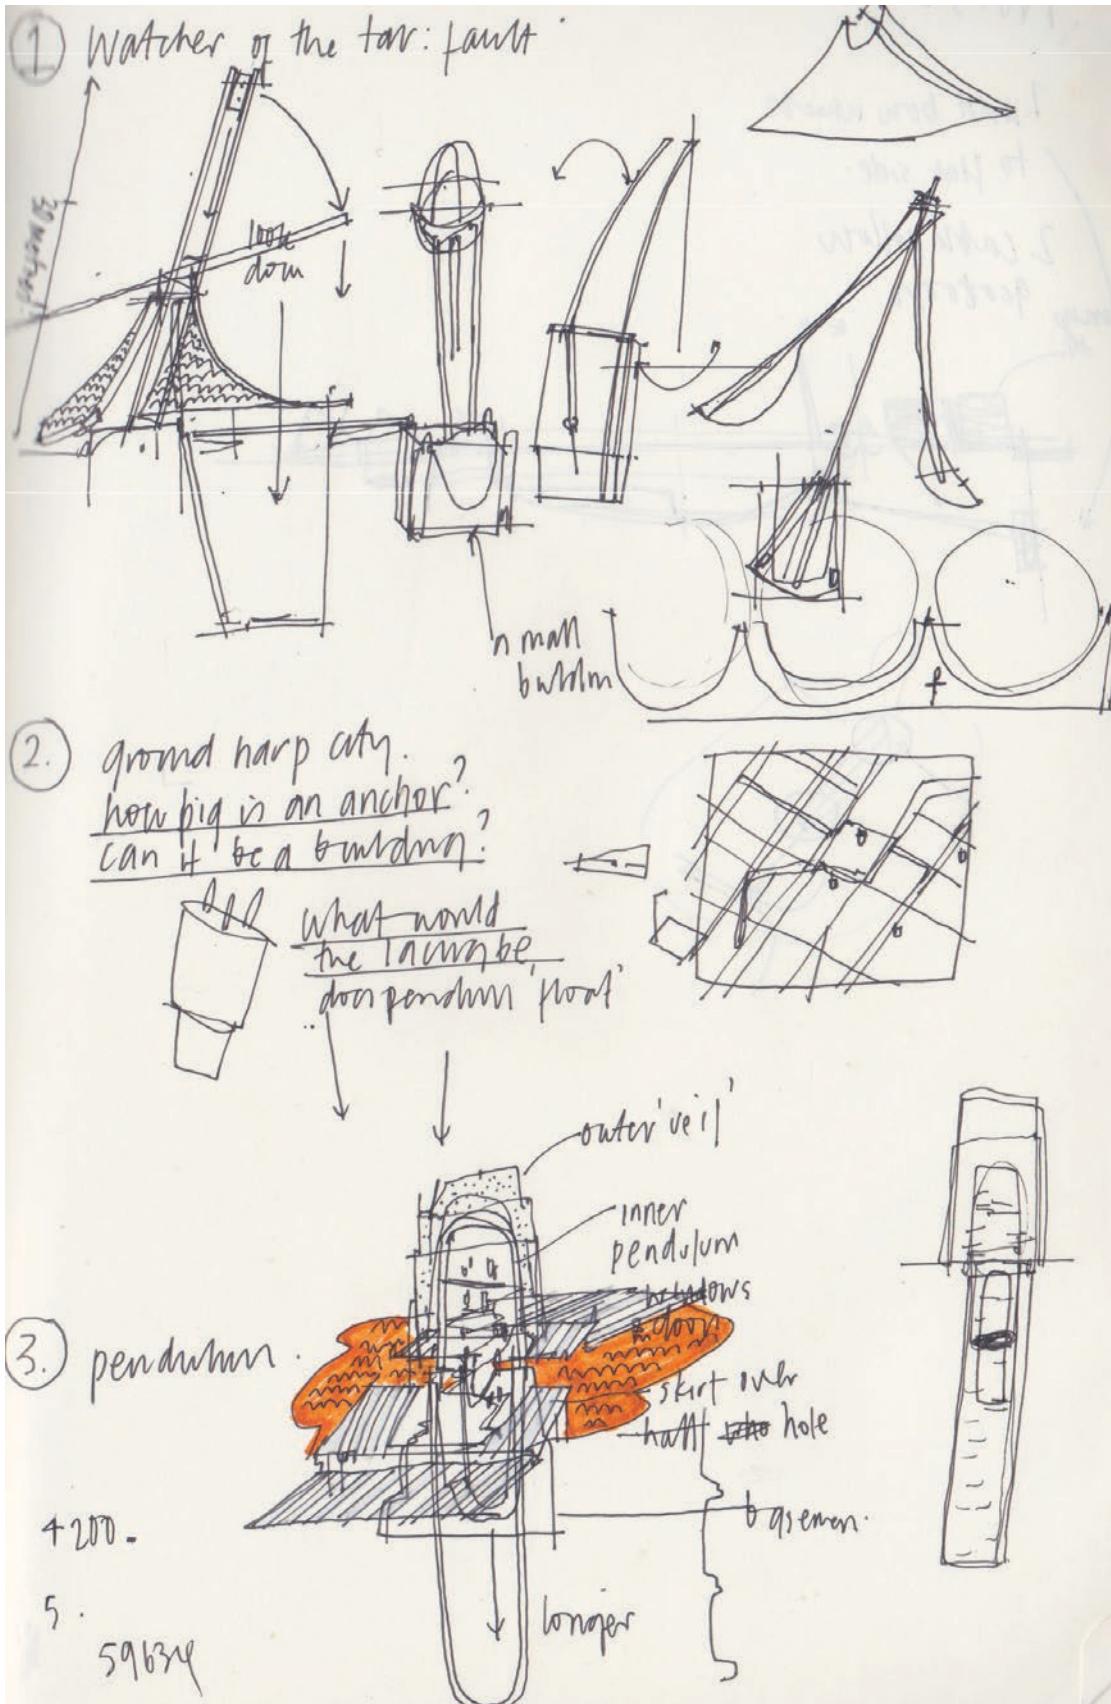 1 Watcher of the tar: fault
look
down
small
buildin
2. ground harp city.
how big is an anchor?
can it be a building?
what would
the lacuna be
does pendulum 'float'
outer 'veil'
inner
pendulum
windows
& door
3. pendulum.
skirt over
half hole
basemen.
4 200.
longer
5.